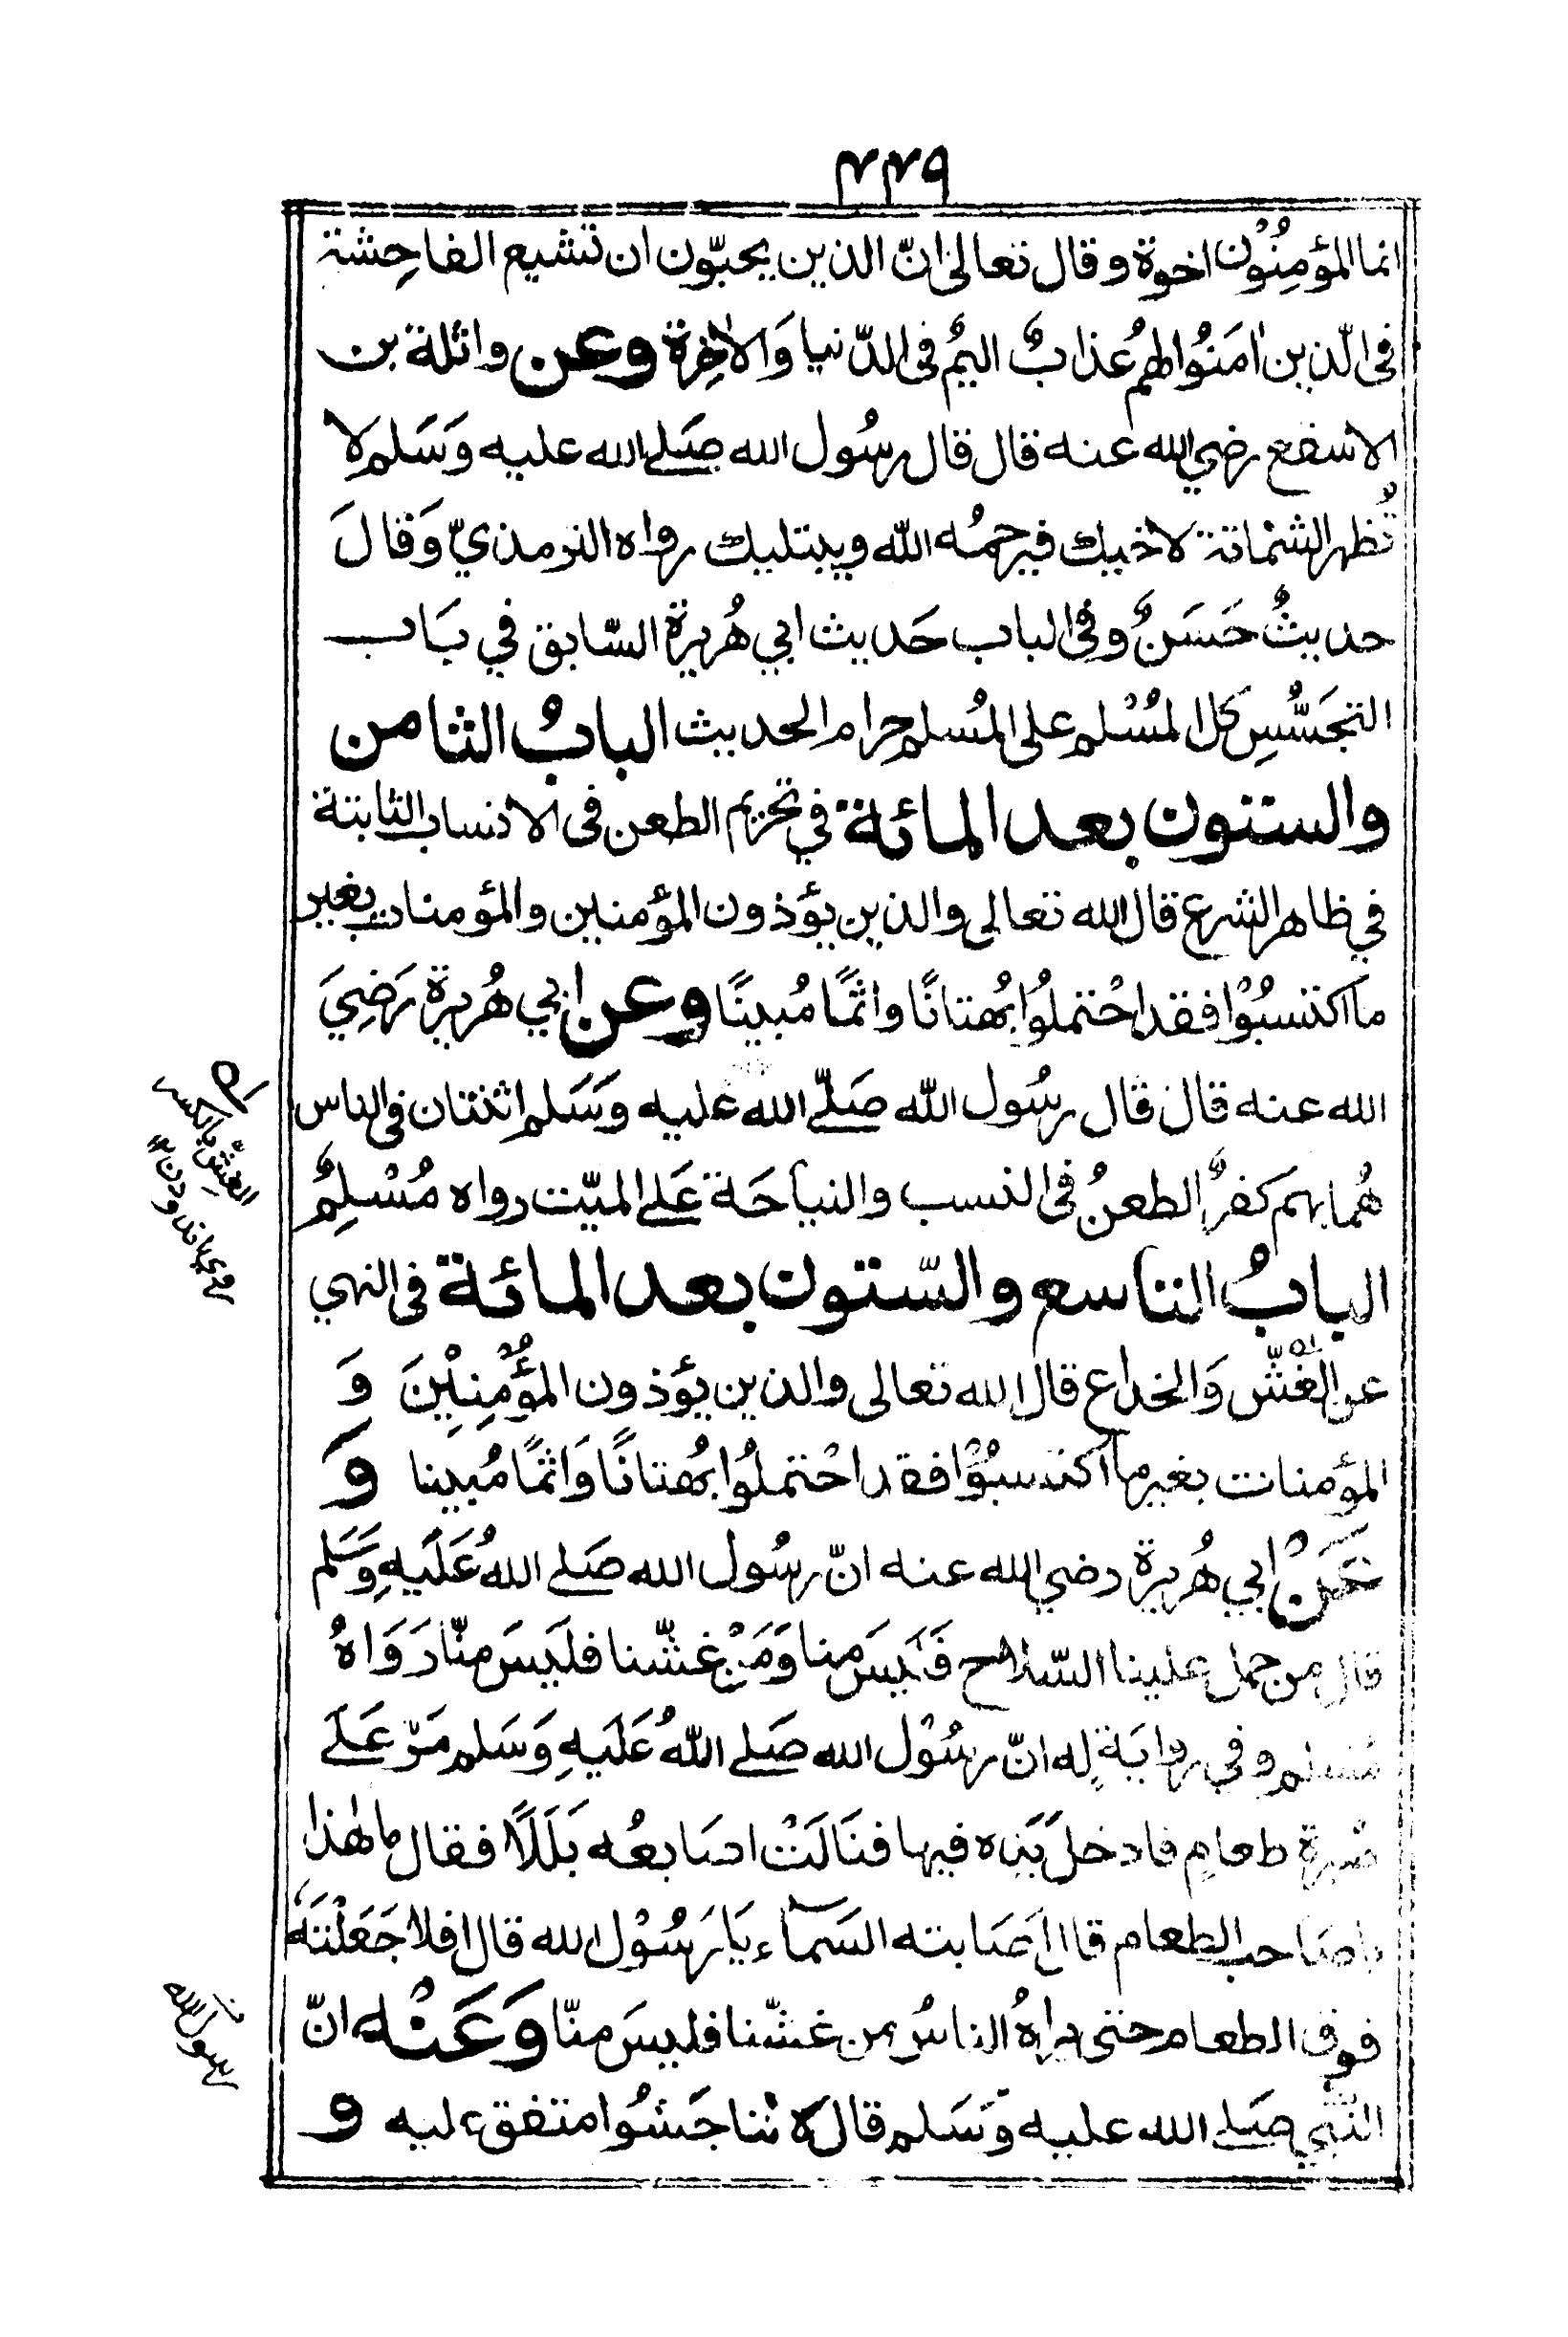 ۴۴۹
انما المؤمِنُون اخوة وقال تعالى انّ الذين يحبّون ان تشيع الفاحِشة
فى الّذين اٰمَنُوا لهمُ عذابٌ اليمٌ فى الدّنيا وَالاٰخِرة وعن واثلة بن
الاسقع رضي الله عنه قال قال رسُول الله صَلے الله عليه وَسَلم لا
تُظهر الشماتة لاخيك فيرحمُه الله ويبتليك رواه الترمذيّ وَقالَ
حديثٌ حَسَنٌ وفى الباب حَديث ابي هُريرة السّابق في بَاب
التجَسُّسِ كل المُسْلم على المُسلم حرام الحديث البابُ الثامن
والستون بعد المائة في تحريم الطعن فى الانساب الثابتة
في ظاهر الشرع قال الله تعالى والذين يؤذون المؤمنين والمؤمنات بغير
ما اكتسبُوْا فقد احْتملُوا بُهتانًا واثمًا مُبينًا وعن ابي هُريرة رَضِيَ
الله عنه قال قال رسُول الله صَلّے الله عليه وَسَلم اثنتان فى الناس
هُما بهم كفرٌ الطعنُ فى النسب والنياحَة عَلے الميّت رواه مُسْلِمٌ
البابُ التاسع والسّتون بعد المائة فى النهي
عن الغشّ وَالخداع قال الله تعالى والذين يؤذون المُؤْمِنِيْنَ وَ
المؤمنات بغير ما اكتسبُوْا فقد احْتملُوا بُهتانًا وَاثمًا مُبينا وَ
عَنْ ابي هُريرة رضي الله عنه انّ رسُول الله صَلے اللهُ عَلَيهِ وَسَلم
قال من حمل علينا السّلاح فَلَيسَ منا وَمَنْ غشّنا فلَيسَ منّا رَوَاهُ
مُسْلم وفي روايَةٍ له انّ رسُوْل الله صَلے اللهُ عَلَيهِ وَسَلم مَرّ عَلے
صُبرة طعام فادخلَ يَده فيها فنَالَتْ اصَابعُه بَلَلًا فقال ما هٰذا
يا صَاحب الطعام قال اَصَابته السَماء يَا رَسُوْل الله قال افلا جَعَلْتَهٗ
فوق الطعام حتى يراهُ الناسُ من غشّنا فليسَ منّا وَعَنْه انّ
النّبي صَلے الله عليه وَسَلم قال لا تناجَشُوا متفق عليه و
الغشّ بالكسر